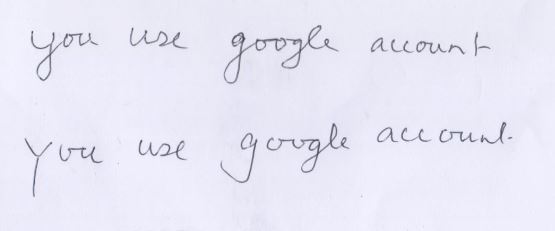 you use google account
You use google account.